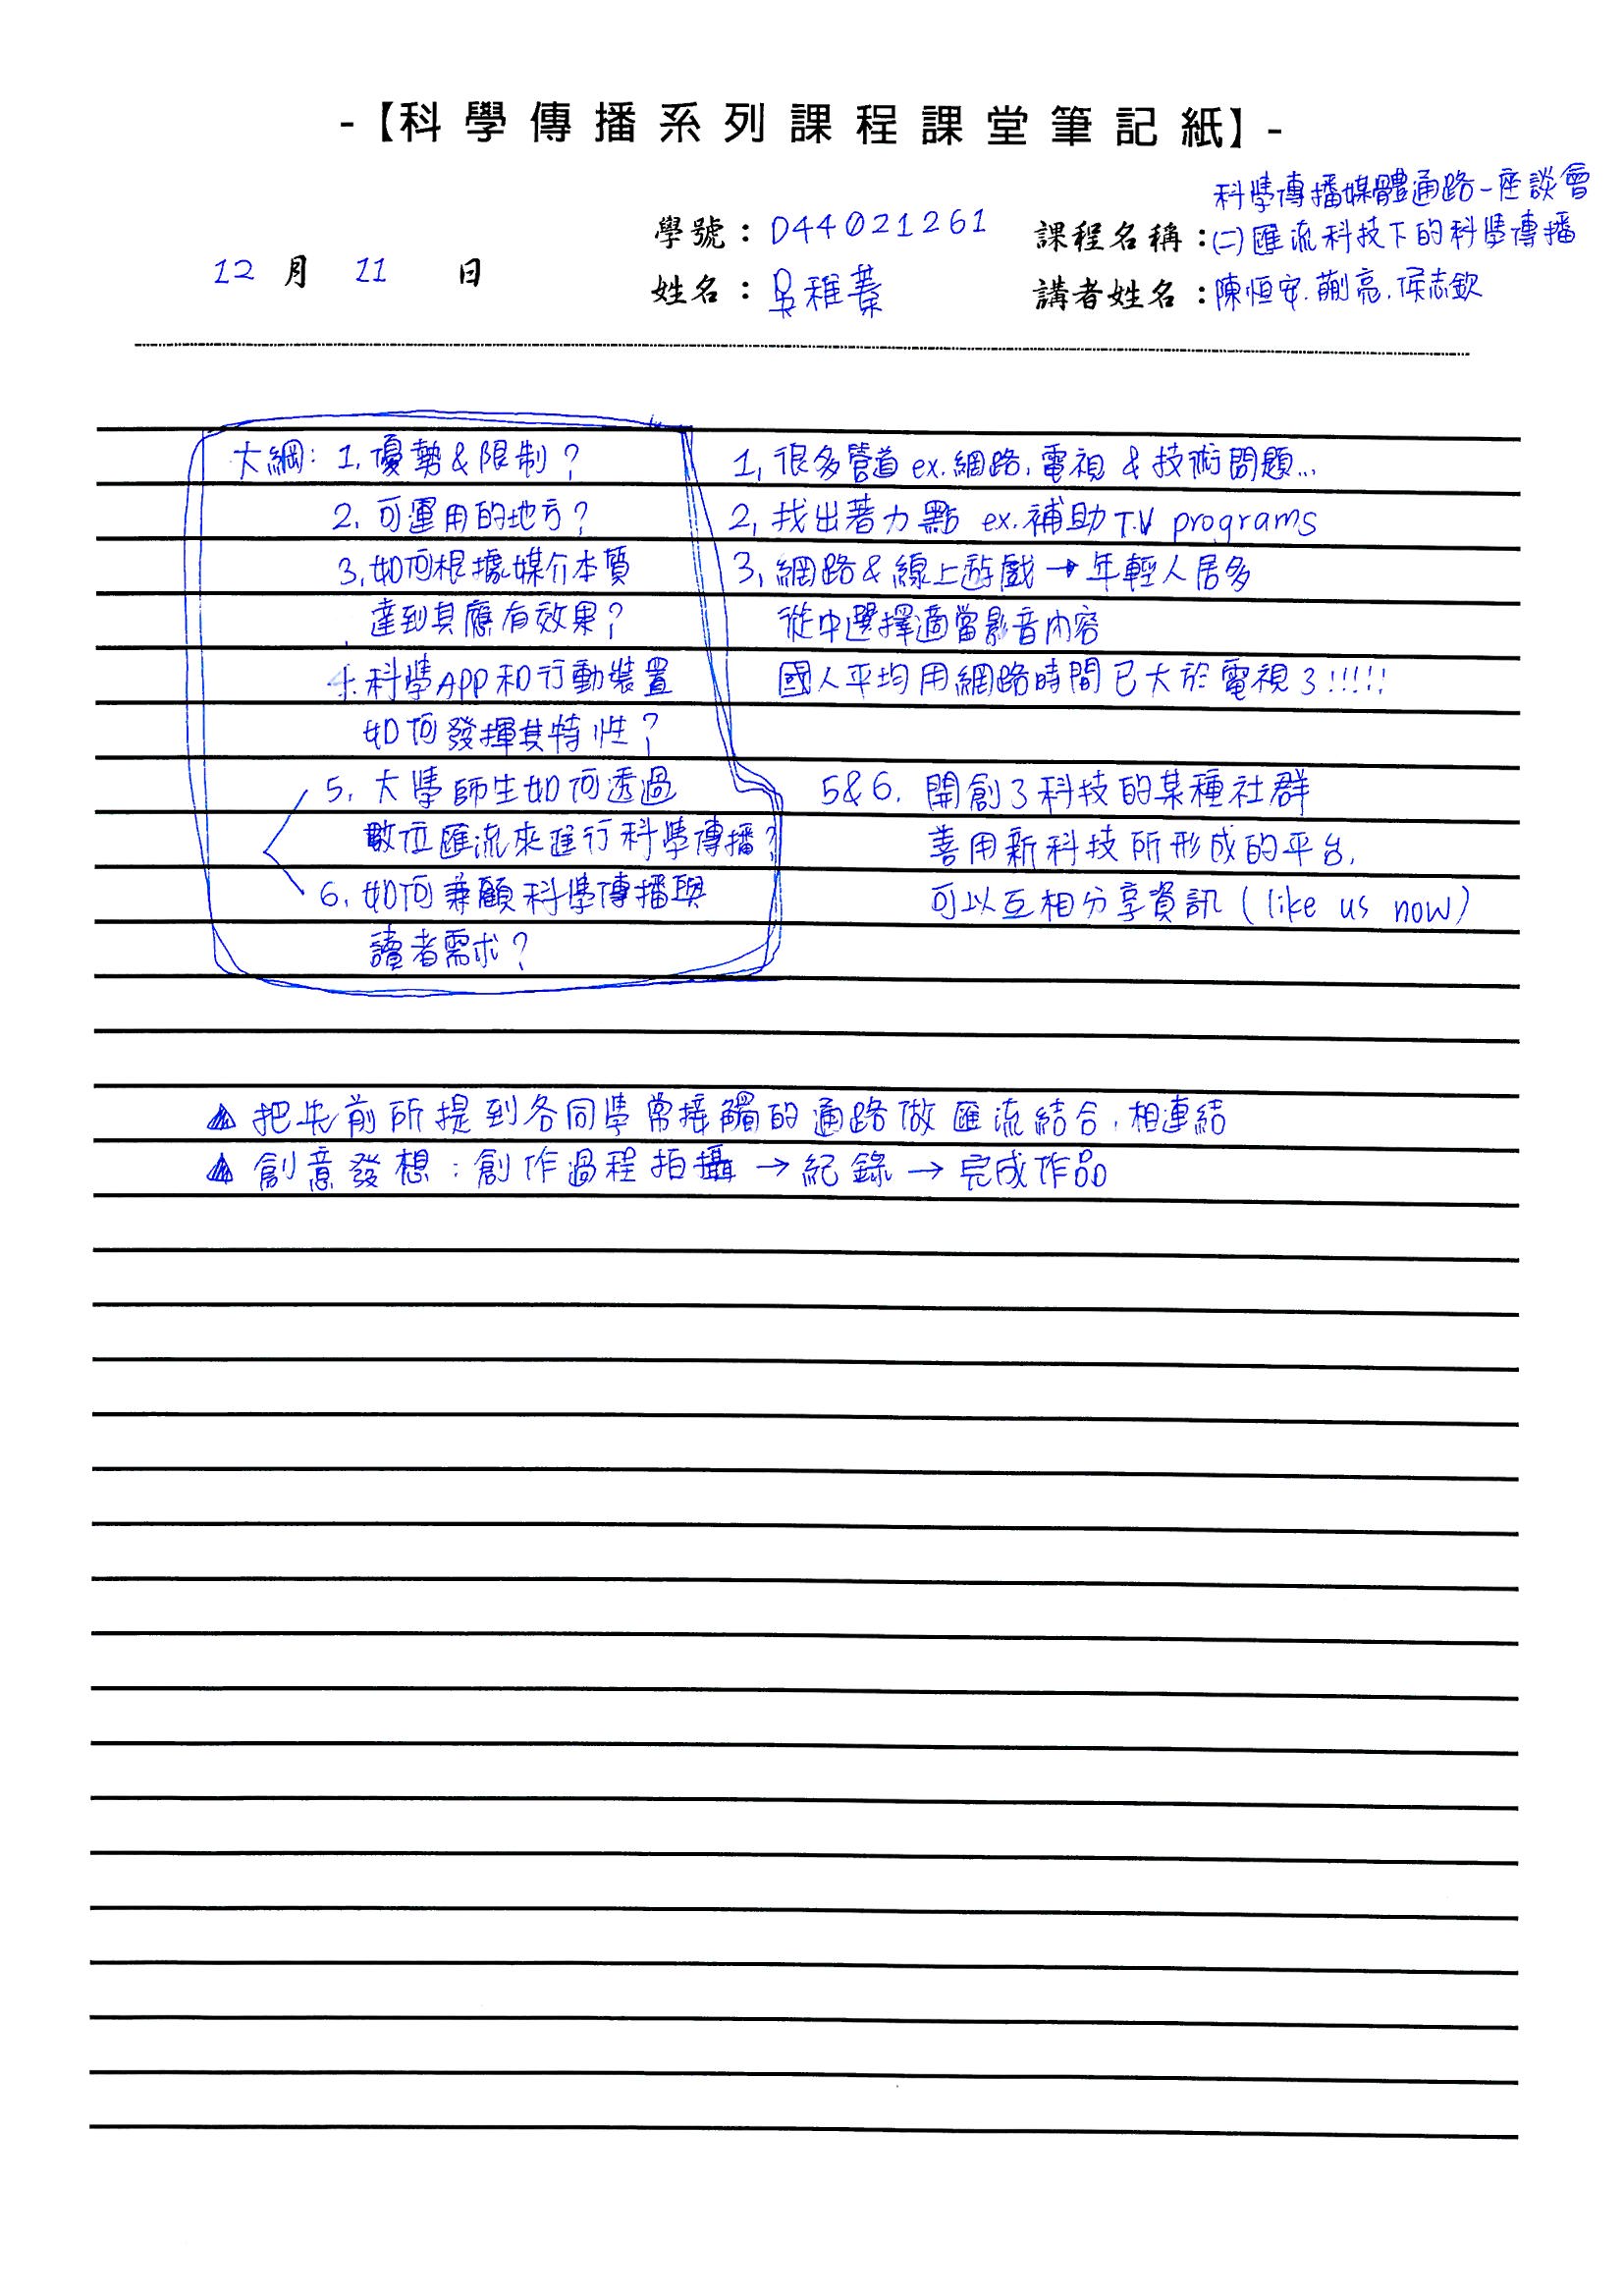 -【科學傳播系列課程課堂筆記紙】-
科學傳播媒體通路-座談會
學號：D44021261 課程名稱：(二)匯流科技下的科學傳播
12 月 11 日
姓名：吳雅蓁 講者姓名：陳恒安.蒯亮.侯志欽
大綱：1.優勢&限制？
2.可運用的地方？
3.如何根據媒介本質
達到其應有效果？
4.科學APP和行動裝置
如何發揮其特性？
5.大學師生如何透過
數位匯流來進行科學傳播？
6.如何兼顧科學傳播與
讀者需求？
1.很多管道 ex.網路.電視 & 技術問題...
2.找出著力點 ex.補助T.V programs
3.網路&線上遊戲→年輕人居多
從中選擇適當影音內容
國人平均用網路時間已大於電視了!!!!!
5&6.開創了科技的某種社群
善用新科技所形成的平台.
可以互相分享資訊(like us now)
▲把先前所提到各同學常接觸的通路做匯流結合.相連結
▲創意發想：創作過程拍攝→紀錄→完成作品